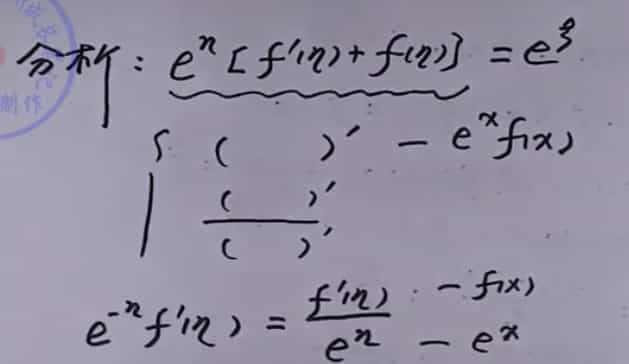 分析: e^η [f'(η) + f(η)] = e^ξ
{ ( )' — e^x f(x)
( )'
( )'
e^{-η} f'(η) = f'(η) / e^η — f(x) — e^x
制作